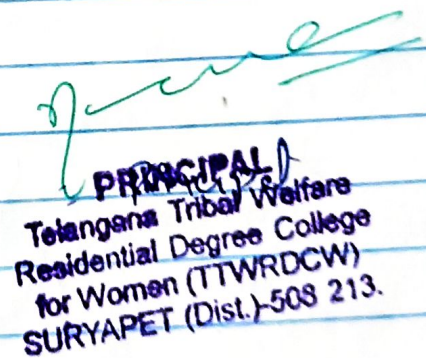 PRINCIPAL
Telangana Tribal Welfare
Residential Degree College
for Women (TTWRDCW)
SURYAPET (Dist.)-508 213.